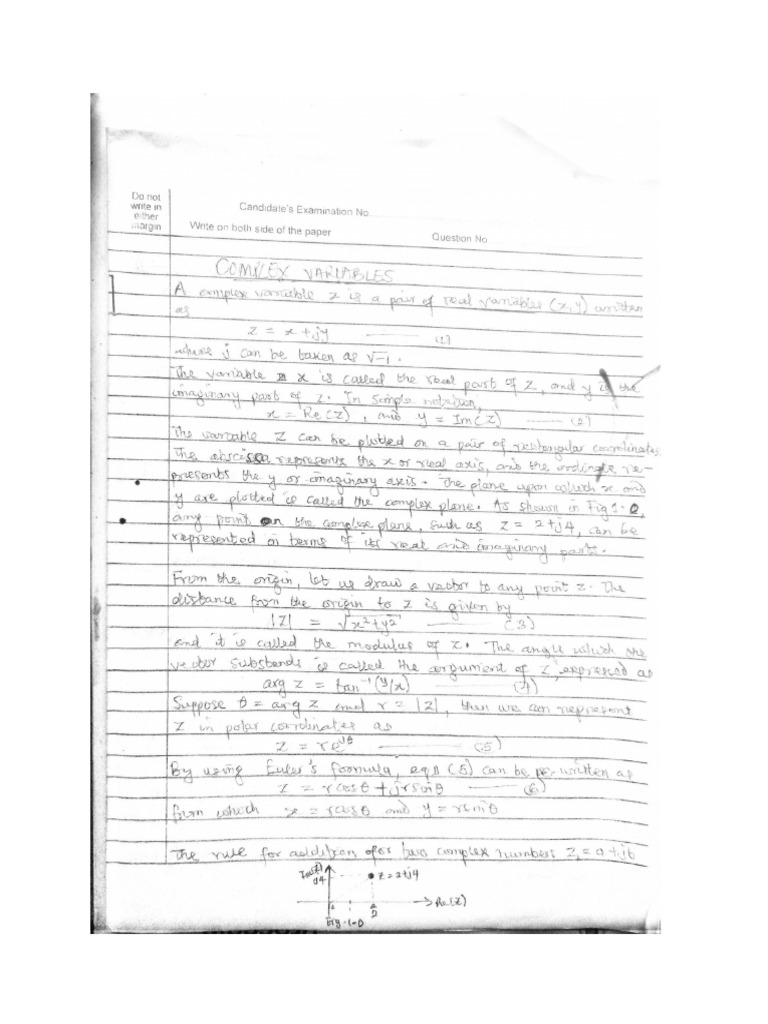 Do not
write in
either
margin
Candidate's Examination No
Write on both side of the paper
Question No
COMPLEX VARIABLES
A complex variable z is a pair of real variables (x, y) written
as
z = x + jy ——— (1)
where j can be taken as √-1.
The variable x is called the real part of z, and y is the
imaginary part of z. In simple notation,
x = Re(z), and y = Im(z) ——— (2)
The variable z can be plotted on a pair of rectangular coordinates.
The abscissa represents the x or real axis, and the ordinate re-
presents the y or imaginary axis. The plane upon which x and
y are plotted is called the complex plane. As shown in Fig 1.0,
any point on the complex plane, such as z = 2+j4, can be
represented in terms of its real and imaginary parts.
From the origin, let us draw a vector to any point z. The
distance from the origin to z is given by
|z| = √x²+y² ——— (3)
and it is called the modulus of z. The angle which the
vector substends is called the argument of z, expressed as
arg z = tan⁻¹(y/x) ——— (4)
Suppose θ = arg z and r = |z|, then we can represent
z in polar coordinates as
z = re^jθ ——— (5)
By using Euler's formula, eqn (5) can be re-written as
z = rcosθ + jrsinθ ——— (6)
from which x = rcosθ and y = rsinθ
The rule for addition of two complex numbers z₁ = a+jb
Im(z)
j4
z = 2+j4
2
Re(z)
Fig. 1.0